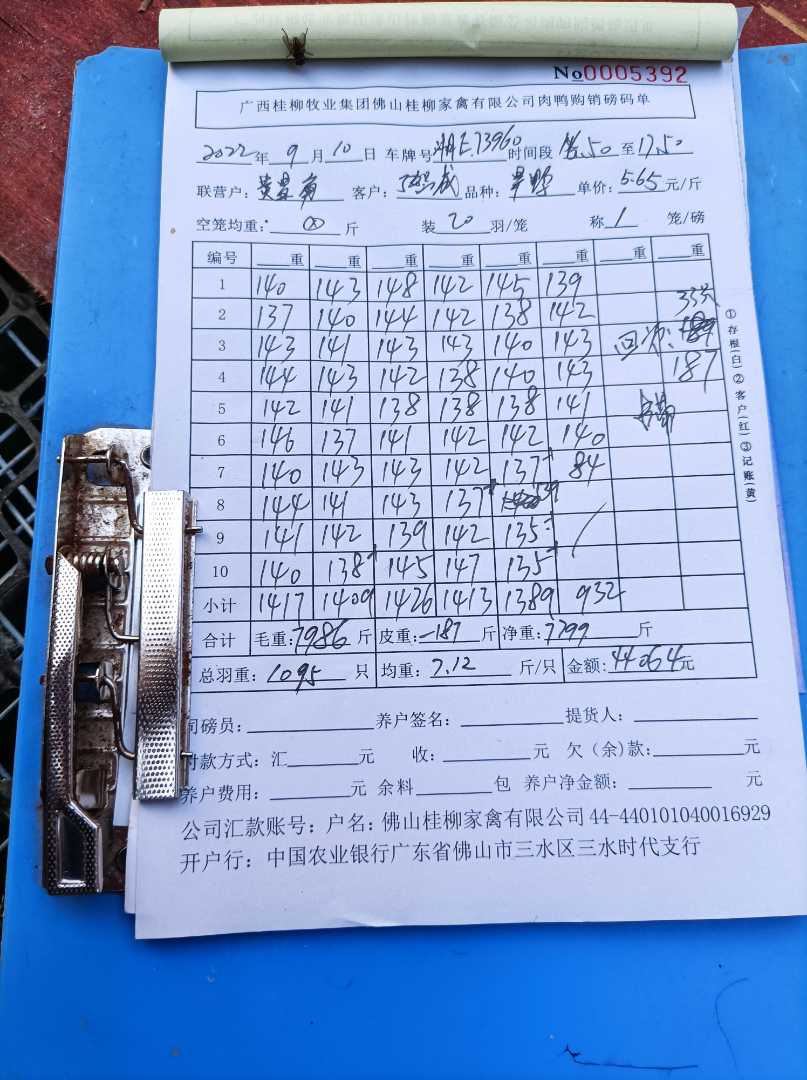 No0005392
广西桂柳牧业集团佛山桂柳家禽有限公司肉鸭购销磅码单
2022年 9 月 10 日 车牌号 E.73960 时间段 .50 至 17.50
联营户： 客户： 品种： 单价：5.65元/斤
空笼均重： 斤 装 20 羽/笼 称 1 笼/磅
编号 重 重 重 重 重 重 重 重
1 140 143 148 142 145 139
2 137 140 144 142 138 142
3 143 141 143 143 140 143 189
4 144 143 142 138 140 143 187
5 142 141 138 138 138 141
6 146 137 141 142 142 140
7 140 143 143 142 137 84
8 144 141 143 137 139
9 141 142 139 142 135
10 140 138 145 147 135
小计 1417 1409 1426 1413 1389 932
合计 毛重:7986 斤 皮重:-187 斤 净重:7799 斤
总羽重：1095 只 均重：7.12 斤/只 金额:44064元
司磅员： 养户签名： 提货人：
付款方式：汇 元 收： 元 欠（余)款： 元
养户费用： 元 余料 包 养户净金额： 元
公司汇款账号：户名：佛山桂柳家禽有限公司 44-440101040016929
开户行：中国农业银行广东省佛山市三水区三水时代支行
①存根(白)②客户(红)③记账(黄)